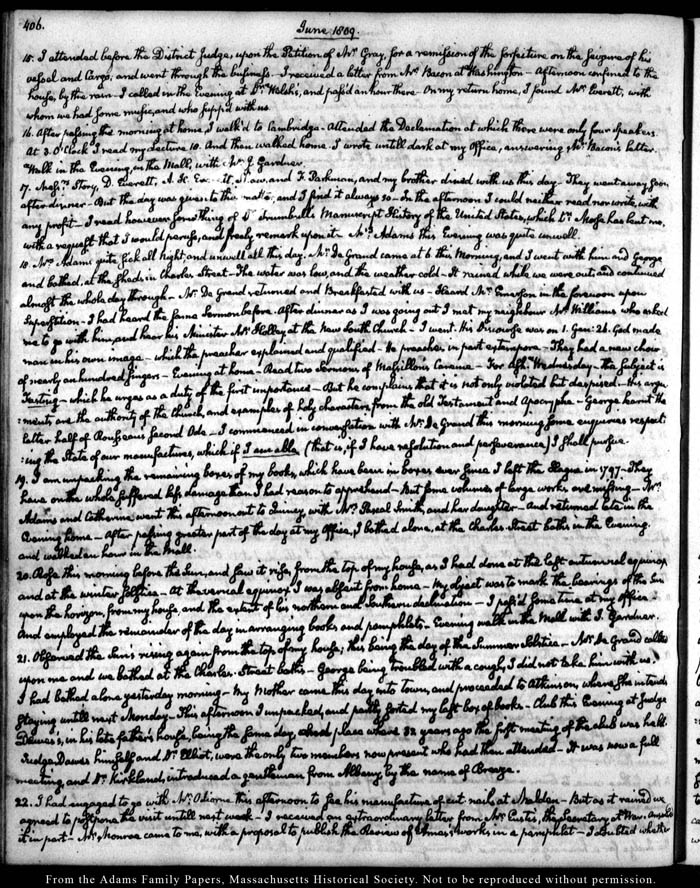 406.
June 1809.
15. I attended before the District Judge, upon the Petition of Mr. Gray, for a remission of the forfeiture on the seizure of his
vessel and Cargo, and went through the business. I received a letter from Mr. Bacon at Washington — Afternoon confined to the
house, by the rain. I called in the Evening at Dr. Welsh's, and pass'd an hour there. On my return home, I found Mrs. Everett, with
whom we had some music, and who supp'd with us.
16. After passing the morning at home I walk'd to Cambridge. Attended the Declamation at which there were only four speakers.
At 3. O'Clock I read my Lecture 10. And then walked home. I wrote untill dark at my Office, answering Mr. Bacon's letter.
Walk in the Evening, in the Mall, with Mr. J. Gardner.
17. Messrs. Story, D. Everett, A. H. and F. Parkman, and my brother dined with us this day. They went away soon
after dinner. But the day was given to the and I find it always so — In the afternoon I could neither read nor write, with
any profit — I read however something of Dr. Trumbull's Manuscript History of the United States, which Dr. Morse has sent me,
with a request that I would peruse, and freely remark upon it. Mrs. Adams this Evening was quite unwell.
18. Mrs. Adams quite sick all night, and unwell all this day. Mr. De Grand came at 6 this Morning, and I went with him and George
and bathed, at the sheds in Charles Street — The water was low, and the weather cold — It rained while we were out; and continued
almost the whole day through — Mr. De Grand returned and Breakfasted with us — Heard Mr. Emerson in the forenoon upon
Superstition — I had heard the same Sermon before. After dinner as I was going out I met my neighbour Mr. Williams who asked
me to go with him, and hear his Minister Mr. Holley, at the New South Church — I went. His Discourse was on 1. Gen: 26. God made
man in his own image — which the preacher explained and qualified — He preaches in part extempore. They had a new choir
of nearly an hundred singers — Evening at home — Read two sermons of Massillon's Careme — For Ash Wednesday — the Subject is
Fasting — which he urges as a duty of the first importance — But he complains that it is not only violated but despised. His argu-
:ments are the authority of the Church, and examples of holy characters, from the old Testament and Apocrypha — George learnt the
latter half of Rousseau's Second Ode — I commenced in conversation with Mr. De Grand this morning some enquiries respect:
:ing the State of our manufactures, which if I am able (that is, if I have resolution and perseverance) I shall pursue.
19. I am unpacking the remaining boxes of my books, which have been in boxes ever since I left the Hague in 1797 — They
have on the whole suffered less damage than I had reason to apprehend — But some volumes of large works are missing — Mrs.
Adams and Catherine went this afternoon out to Quincy, with Mrs. Smith, and her daughter — And returned late in the
Evening home. — After passing greater part of the day at my Office, I bathed alone, at the Charles Street baths in the Evening,
and walked an hour in the Mall.
20. Rose this morning before the Sun, and saw it rise, from the top of my house, as I had done at the last autumnal equinox
and at the winter Solstice — At the vernal equinox I was absent from home — My object was to mark the bearings of the Sun
upon the horizon, from my house, and the extent of his northern and Southern declination — I pass'd some time at my Office
And employed the remainder of the day in arranging books and pamphlets — Evening walk in the Mall with J. Gardner.
21. Observed the Sun's rising again from the top of my house; this being the day of the Summer Solstice — Mr. De Grand called
upon me and we bathed at the Charles-Street baths — George being troubled with a cough, I did not take him with us.
I had bathed alone yesterday morning — My Mother came this day into town, and proceeded to Atkinson, where she intends
staying untill next Monday — This afternoon I unpacked, and partly sorted my last box of books — Club this Evening at Judge
Dawes's, in his late father's house, being the same day, and place where 32 years ago the first meeting of the club was held.
Judge Dawes himself, and Dr. Elliot, were the only two members now present who had then attended — It was now a full
meeting, and Dr. Kirkland, introduced a gentleman from Albany by the name of Breeze.
22. I had engaged to go with Mr. Odiorne this afternoon to see his manufacture of cut nails at Malden — But as it rained we
agreed to postpone the visit untill next week — I received an extraordinary letter from Mr. Eustis, the Secretary at War. Answered
it in part — Mr. Monroe came to me, with a proposal to publish the Review of Ames's works in a pamphlet — I doubted whether
From the Adams Family Papers, Massachusetts Historical Society. Not to be reproduced without permission.